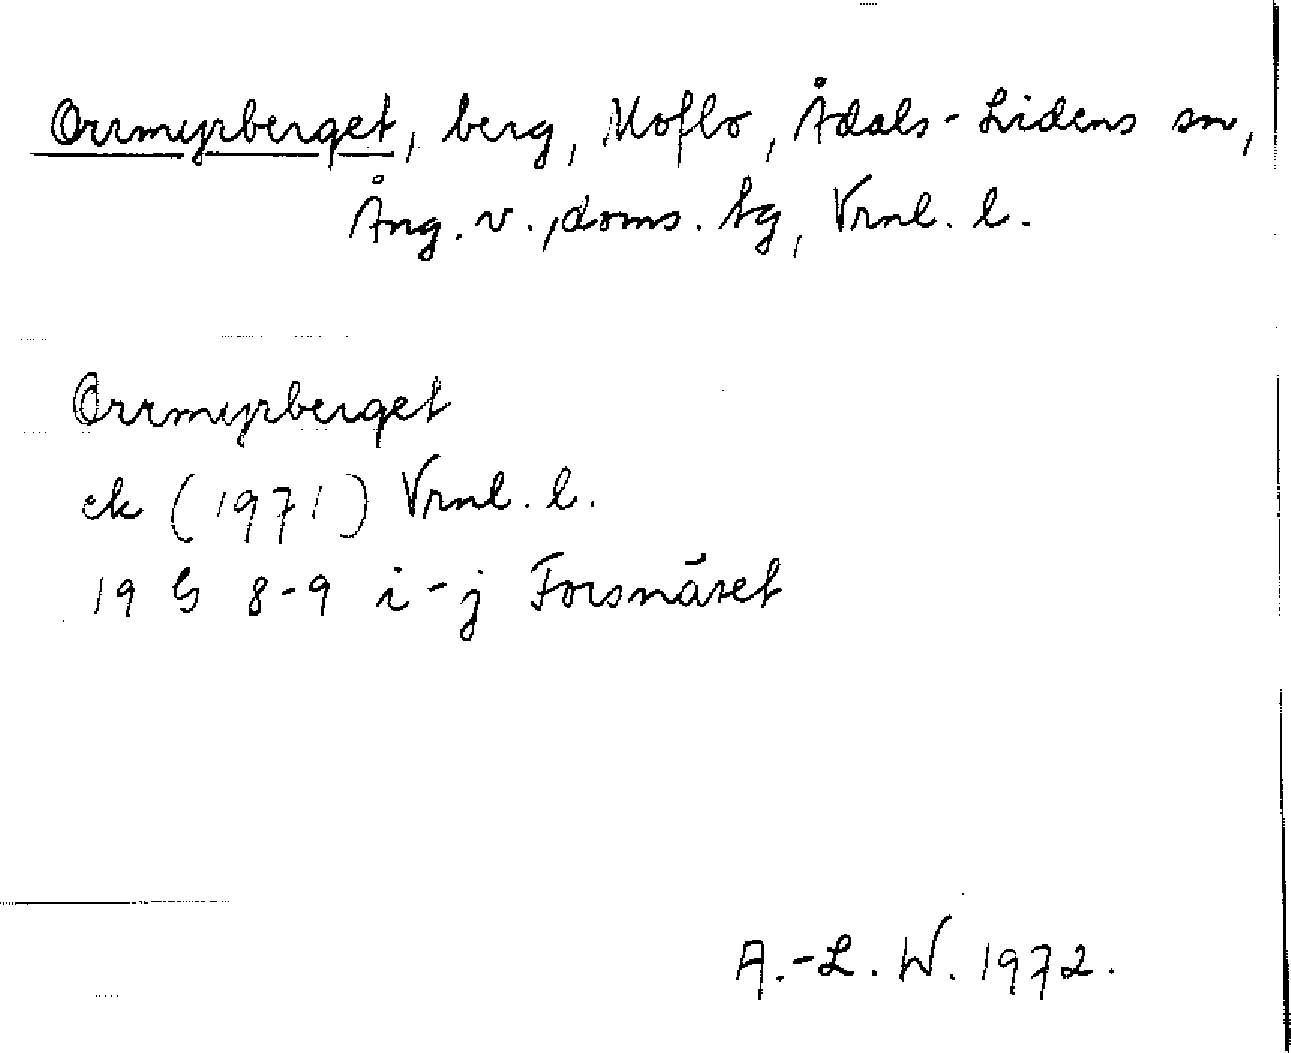 Orrmyrberget, berg, Moflo, Ådals-Lidens sn,
Ång. v. doms. tg, Vrnl. l.
Orrmyrberget
ek (1971) Vrnl. l.
19 G 8-9 i-j Forsnäset
A.-L. W. 1972.